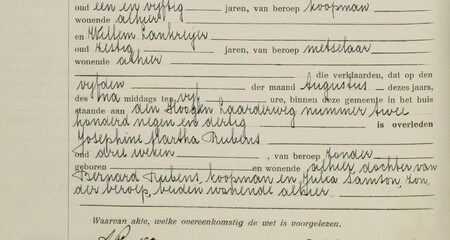 oud een en vijftig jaren, van beroep koopman
wonende alhier
en Willem Lankreijer
oud zestig jaren, van beroep metselaar
wonende alhier
die verklaarden, dat op den
vijfden der maand Augustus dezes jaars,
des na middags te vijf ure, binnen deze gemeente in het huis
staande aan den Hoogen Zaarderweg nummer twee
honderd negen en dertig is overleden
Josephine Martha Rubens
oud drie weken, van beroep zonder
geboren en wonende alhier, dochter van
Bernard Rubens, koopman en Julia Santon, zon
der beroep, beiden wonende alhier.
Waarvan akte, welke overeenkomstig de wet is voorgelezen.